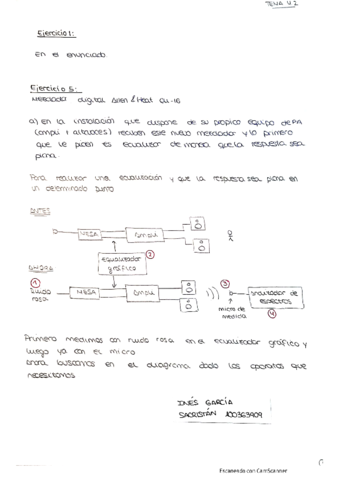 TEMA 4.2
Ejercicio 1:
En el enunciado.
Ejercicio 5:
Mezclador digital Allen & Heath Qu-16
a) en la instalación que dispone de su propio equipo de PA
(ampli + altavoces) reciben este nuevo mezclador y lo primero
que le piden es ecualizar de manera que la respuesta sea
plana.
Para realizar una ecualización y que la respuesta sea plana en
un determinado punto
ANTES
MESA
Ampli
ecualizador
gráfico
2
AHORA
1
Ruido
rosa
MESA
Ampli
3
micro de
medida
analizador de
espectros
4
Primero medimos con ruido rosa en el ecualizador gráfico y
luego ya con el micro
ahora buscamos en el diagrama dado los aparatos que
necesitamos
INÉS GARCÍA
SACRISTÁN 100363909
Escaneado con CamScanner